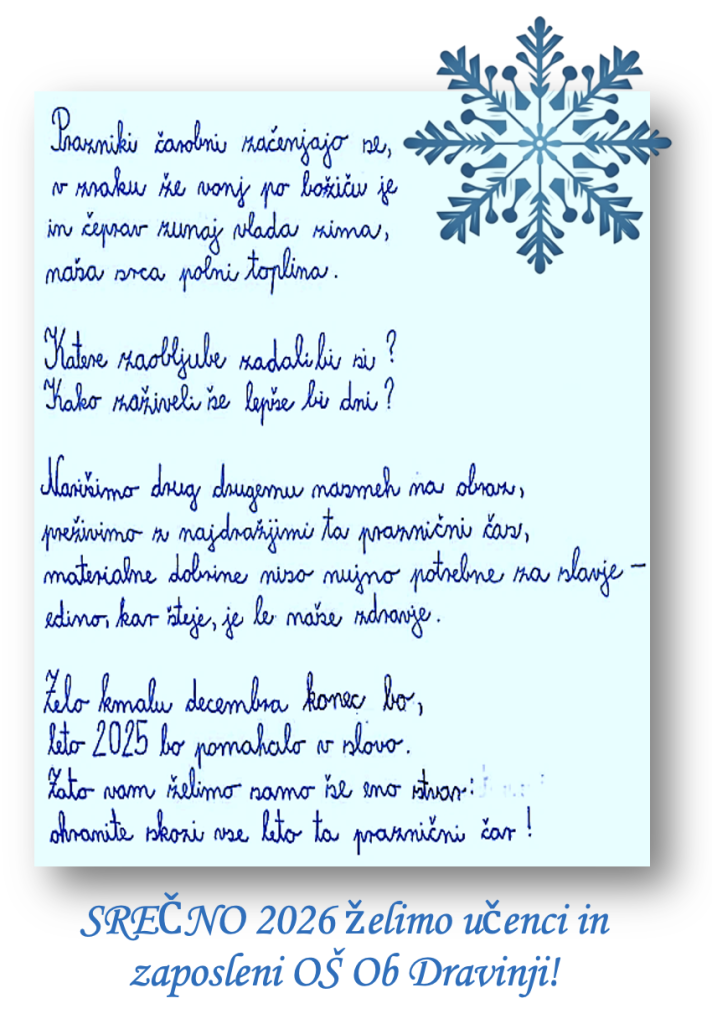 Prazniki čarobni začenjajo se,
v zraku že vonj po božiču je
in čeprav zunaj vlada zima,
naša srca polni toplina.
Katere zaobljube zadali bi si?
Kako zaživeli še lepše bi dni?
Narišimo drug drugemu nasmeh na obraz,
preživimo z najdražjimi ta praznični čas,
materialne dobrine niso nujno potrebne za slavje –
edino, kar šteje, je le naše zdravje.
Zelo kmalu decembra konec bo,
leto 2025 bo pomahalo v slovo.
Zato vam želimo samo še eno stvar:
ohranite skozi vse leto ta praznični čar!
SREČNO 2026 želimo učenci in
zaposleni OŠ Ob Dravinji!